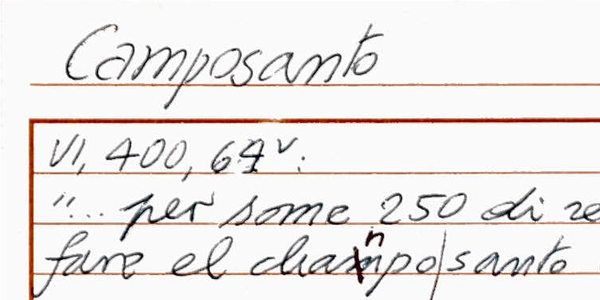 Camposanto
VI, 400, 64v:
"... per some 250 di
fare el chanpo|santo